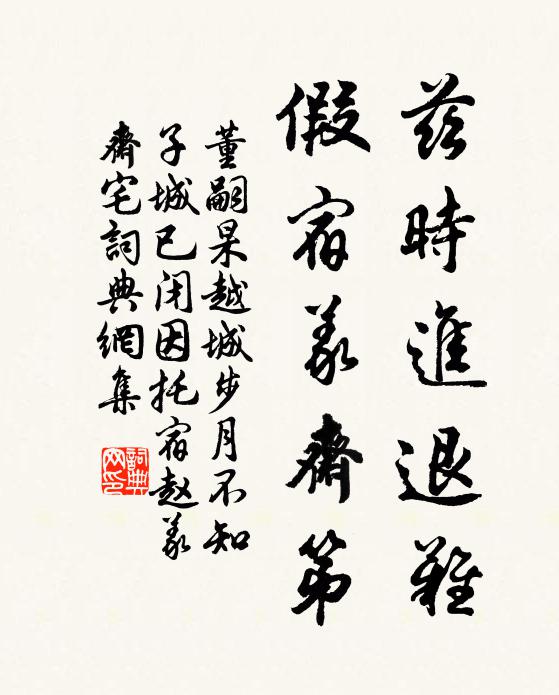 茲時進退難
假宿義齋第
董嗣杲越城步月不知
子城已闭因托宿赵義
齋宅詞典網集
詞典網印